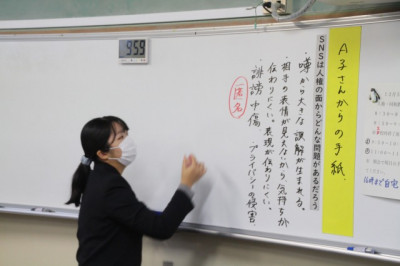 A子さんからの手紙
SNSは人権の面からどんな問題があるだろう
・噂から大きな誤解が生まれる。
・相手の表情が見えないから気持ちが
伝わりにくい。表現が伝わりにくい。
・誹謗中傷 プライバシーの侵害
匿名
9:59